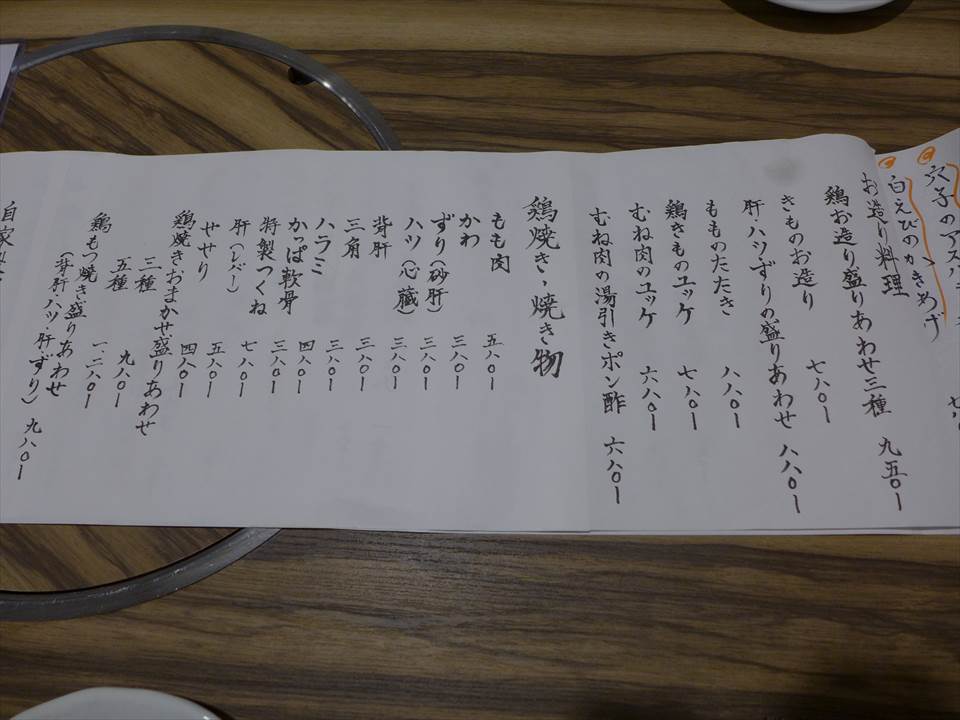 穴子のアスパ
白えびのかきあげ
お造り料理
鶏お造り盛りあわせ三種 九五〇ー
きものお造り 七八〇ー
肝・ハツ・ずりの盛りあわせ 八八〇ー
もものたたき 八八〇ー
鶏きものユッケ 七八〇ー
むね肉のユッケ 六八〇ー
むね肉の湯引きポン酢 六八〇ー
鶏焼き・焼き物
もも肉 五八〇ー
かわ 三八〇ー
ずり(砂肝) 三八〇ー
ハツ(心臓) 三八〇ー
背肝 三八〇ー
三角 三八〇ー
ハラミ 三八〇ー
かっぱ軟骨 四八〇ー
特製つくね 三八〇ー
肝(レバー) 七八〇ー
せせり 五八〇ー
鶏焼きおまかせ盛りあわせ 四八〇ー
三種
五種 九八〇ー
鶏もつ焼き盛りあわせ 一.二八〇ー
(背肝・ハツ・肝・ずり) 九八〇ー
自家